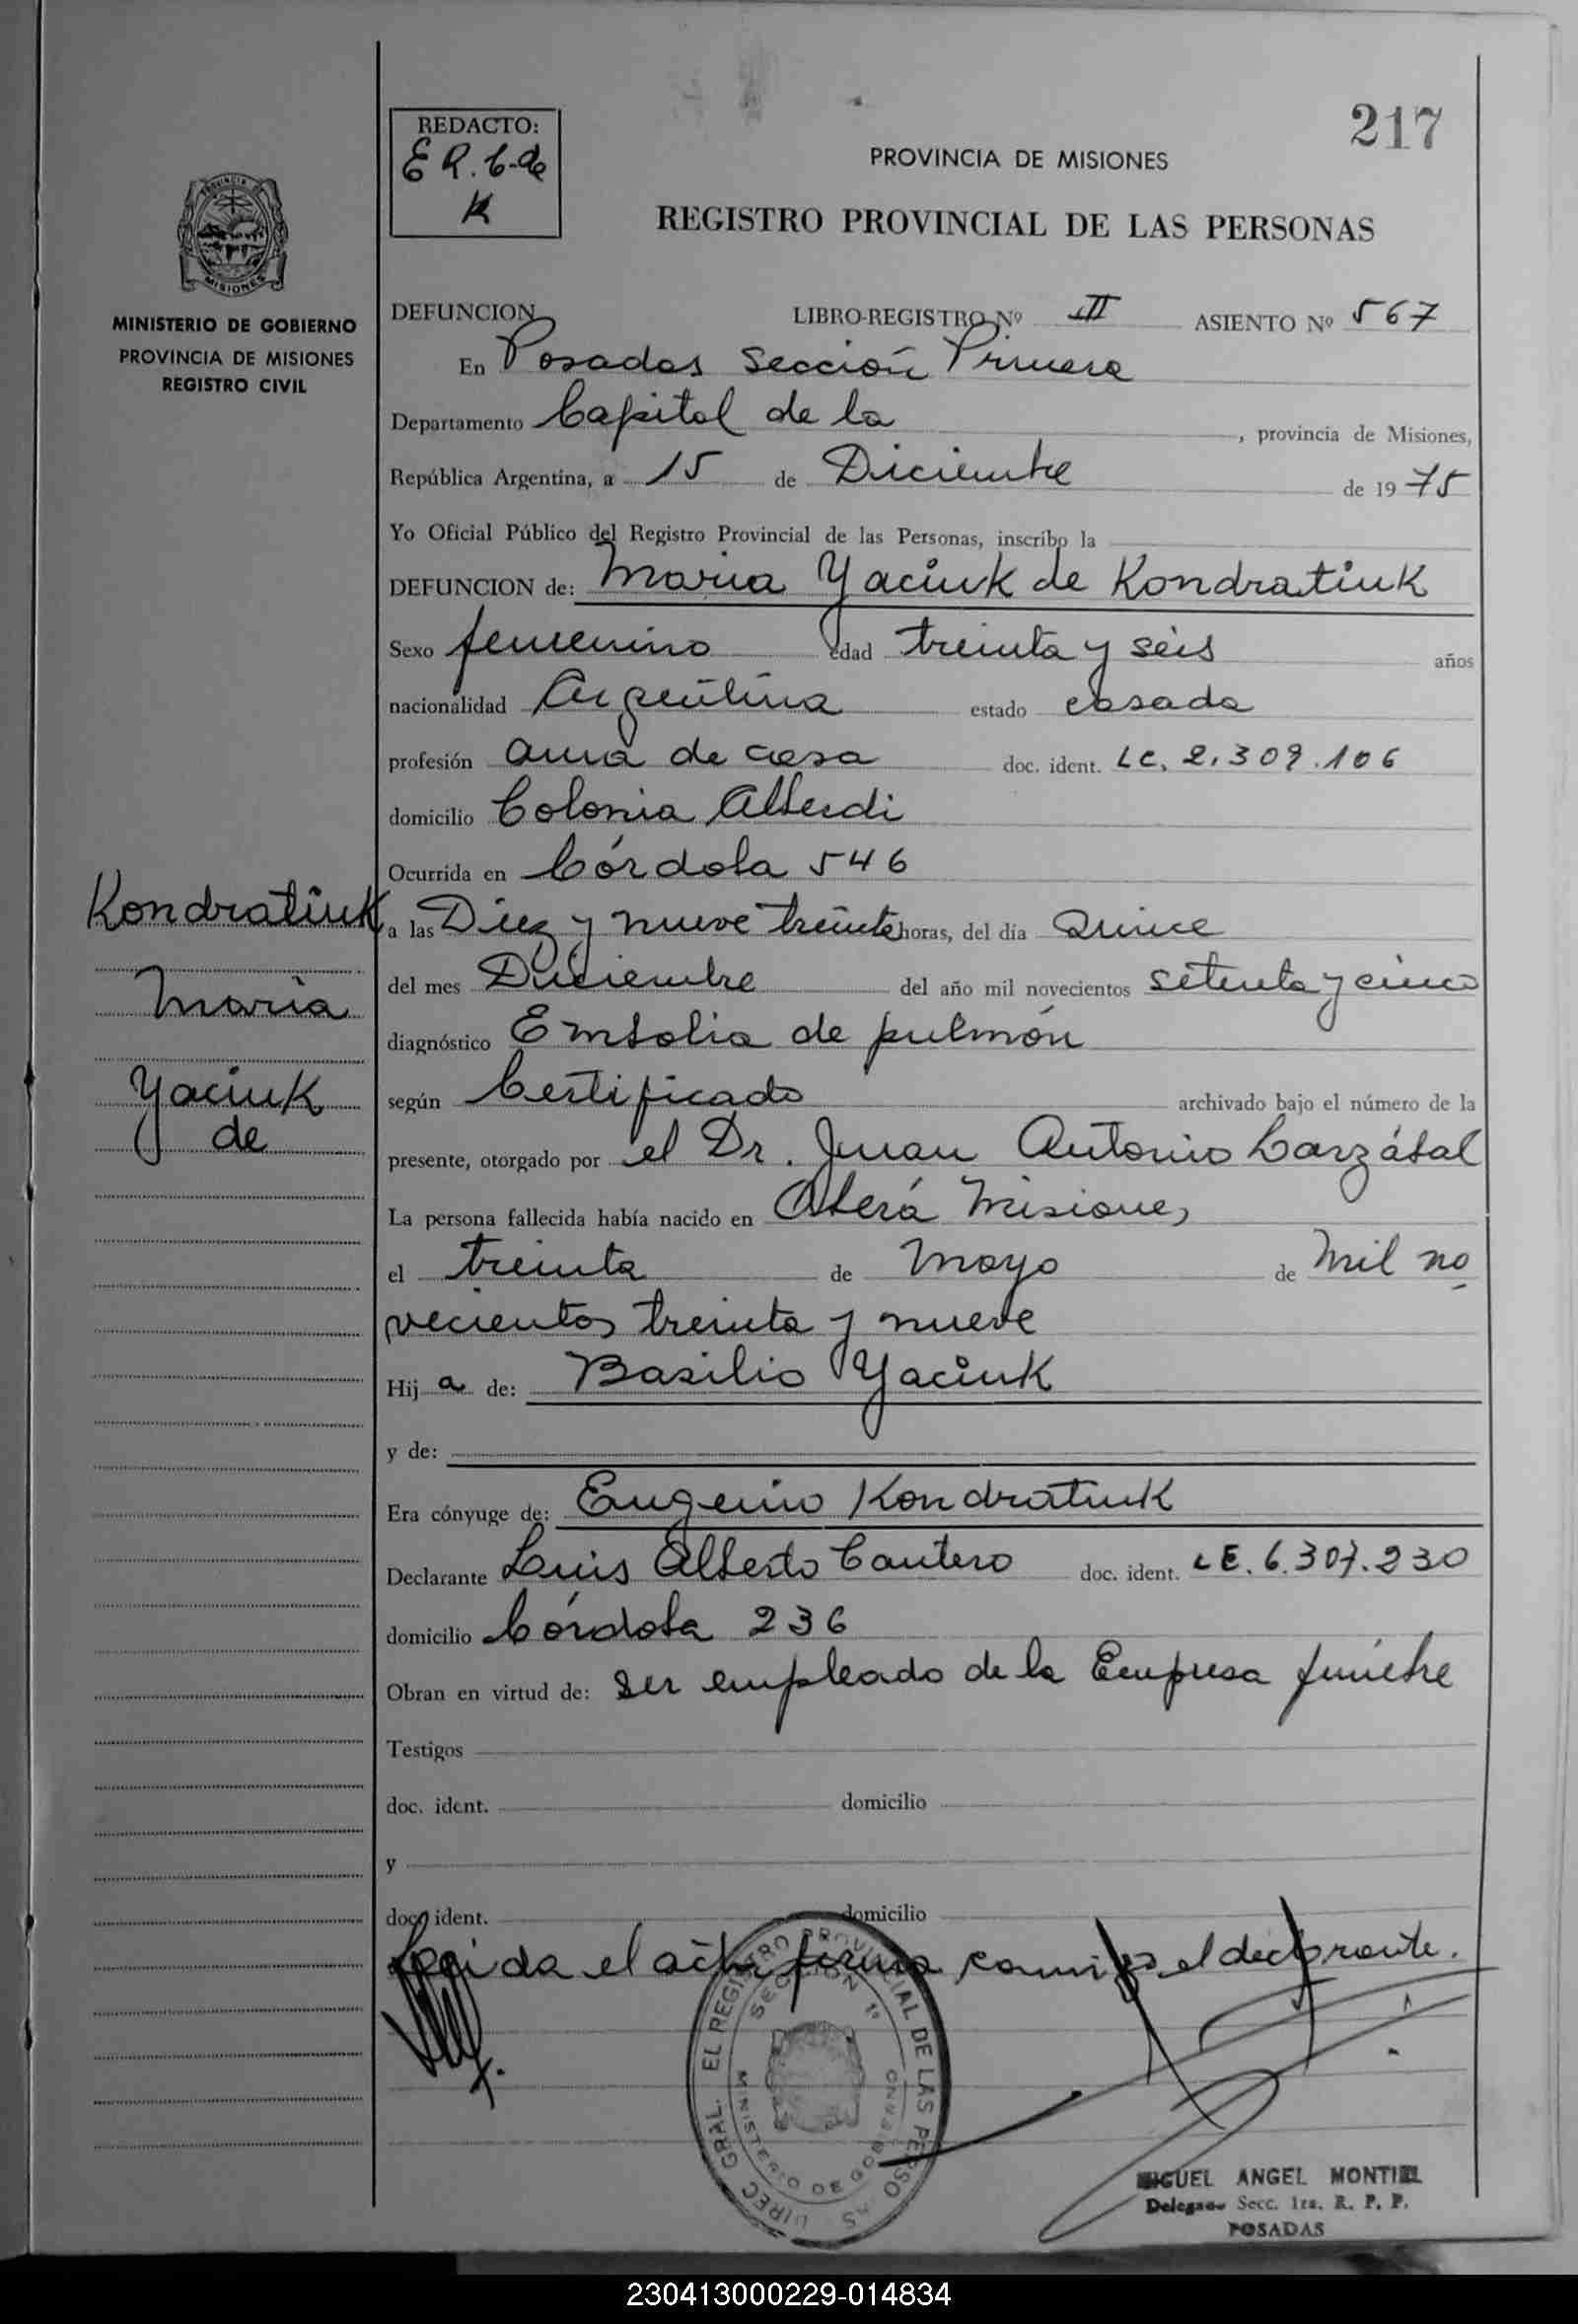 217
REDACTO:
E R. C. de
K
PROVINCIA DE MISIONES
REGISTRO PROVINCIAL DE LAS PERSONAS
MISIONES
MINISTERIO DE GOBIERNO
PROVINCIA DE MISIONES
REGISTRO CIVIL
DEFUNCION LIBRO-REGISTRO Nº III ASIENTO Nº 567
En Posadas Sección Primera
Departamento Capital de la , provincia de Misiones,
República Argentina, a 15 de Diciembre de 1975
Yo Oficial Público del Registro Provincial de las Personas, inscribo la
DEFUNCION de: Maria Yaciuk de Kondratiuk
Sexo femenino edad treinta y seis años
nacionalidad Argentina estado casada
profesión ama de casa doc. ident. LC. 2.309.106
domicilio Colonia Alberdi
Ocurrida en Córdoba 546
a las Diez y nueve treinta horas, del día Quince
del mes Diciembre del año mil novecientos setenta y cinco
diagnóstico Embolia de pulmón
según Certificado archivado bajo el número de la
presente, otorgado por el Dr. Juan Antonio Barzábal
La persona fallecida había nacido en Oberá Misiones
el treinta de Mayo de Mil no
vecientos treinta y nueve
Hij a de: Basilio Yaciuk
y de:
Era cónyuge de: Eugenio Kondratiuk
Declarante Luis Alberto Cantero doc. ident. LE. 6.307.230
domicilio Córdoba 236
Obran en virtud de: Ser empleado de la Empresa fúnebre
Testigos
doc. ident. domicilio
y
doc. ident. domicilio
Leida el acta firma conmigo el declarante.
Kondratiuk
Maria
Yaciuk
de
DIREC GRAL. EL REGISTRO PROVINCIAL DE LAS PERSONAS
SECCION 1ª
MINISTERIO DE GOBIERNO
MIGUEL ANGEL MONTIEL
Delegado Secc. 1ra. R. P. P.
POSADAS
230413000229-014834